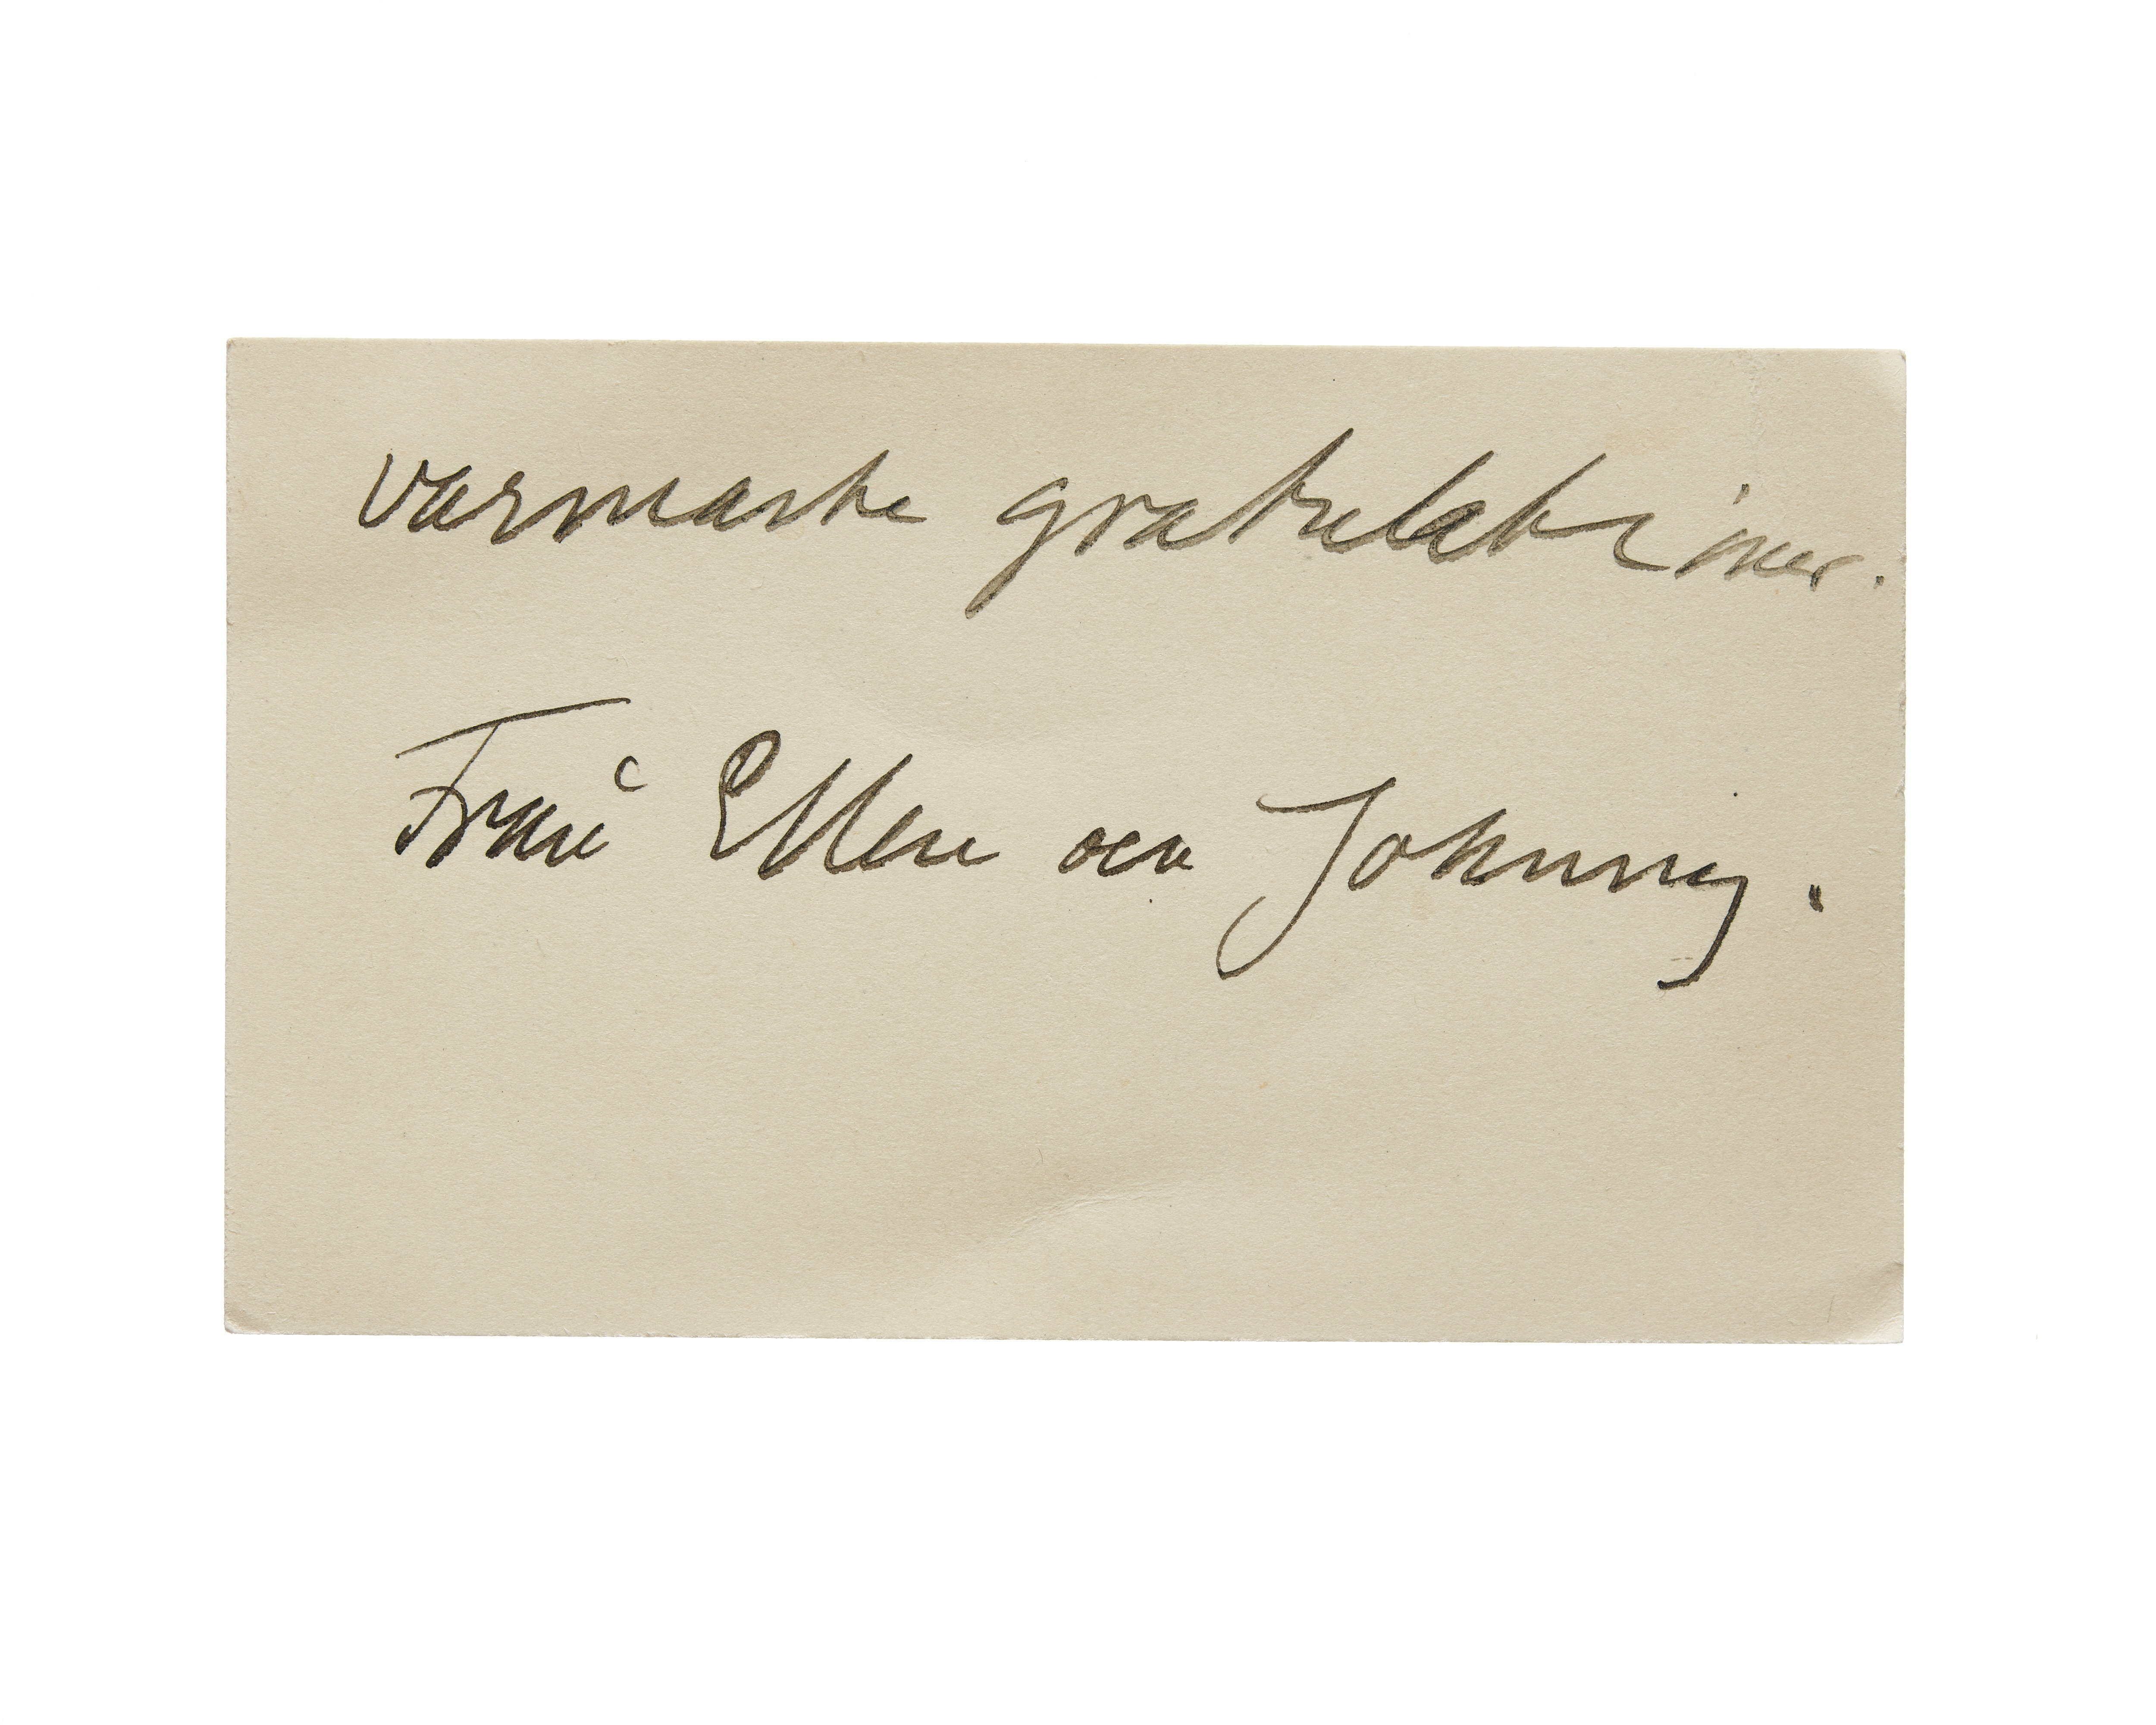 varmaste gratulationer.
Från Ellen och Johnny.